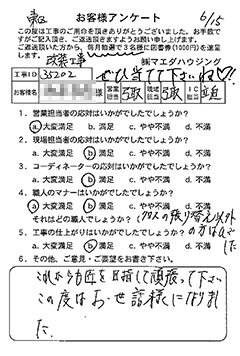 お客様アンケート 6/15
この度は工事のご用命を頂きありがとうございました。お手数で
すがご記入頂き、ご返送頂きますようお願い申し上げます。
ご返送頂いた方から、毎月抽選で3名様に図書券(1000円)を進呈
します。
改装工事 ㈱マエダハウジング
ぜひ当てて下さいね♡!!
工事ID 35202
お客様名 様 営業担当 現場担当 IC担当
1.営業担当者の応対はいかがでしたでしょうか?
a.大変満足 b.満足 c.やや不満 d.不満
2.現場担当者の応対はいかがでしたでしょうか?
a.大変満足 b.満足 c.やや不満 d.不満
3.コーディネーターの応対はいかがでしたでしょうか?
a.大変満足 b.満足 c.やや不満 d.不満
4.職人のマナーはいかがでしたでしょうか?
a.大変満足 b.満足 c.やや不満 d.不満
それはどの職人でしょうか?(クロスの張り替え以外
の方は
5.工事の仕上がりはいかがでしたでしょうか?
a.大変満足 b.満足 c.やや不満 d.不満
6.その他、ご意見・ご要望をお書き下さい。
これからも匠を目指して頑張って下さい
この度はお世話様になりまし
た.